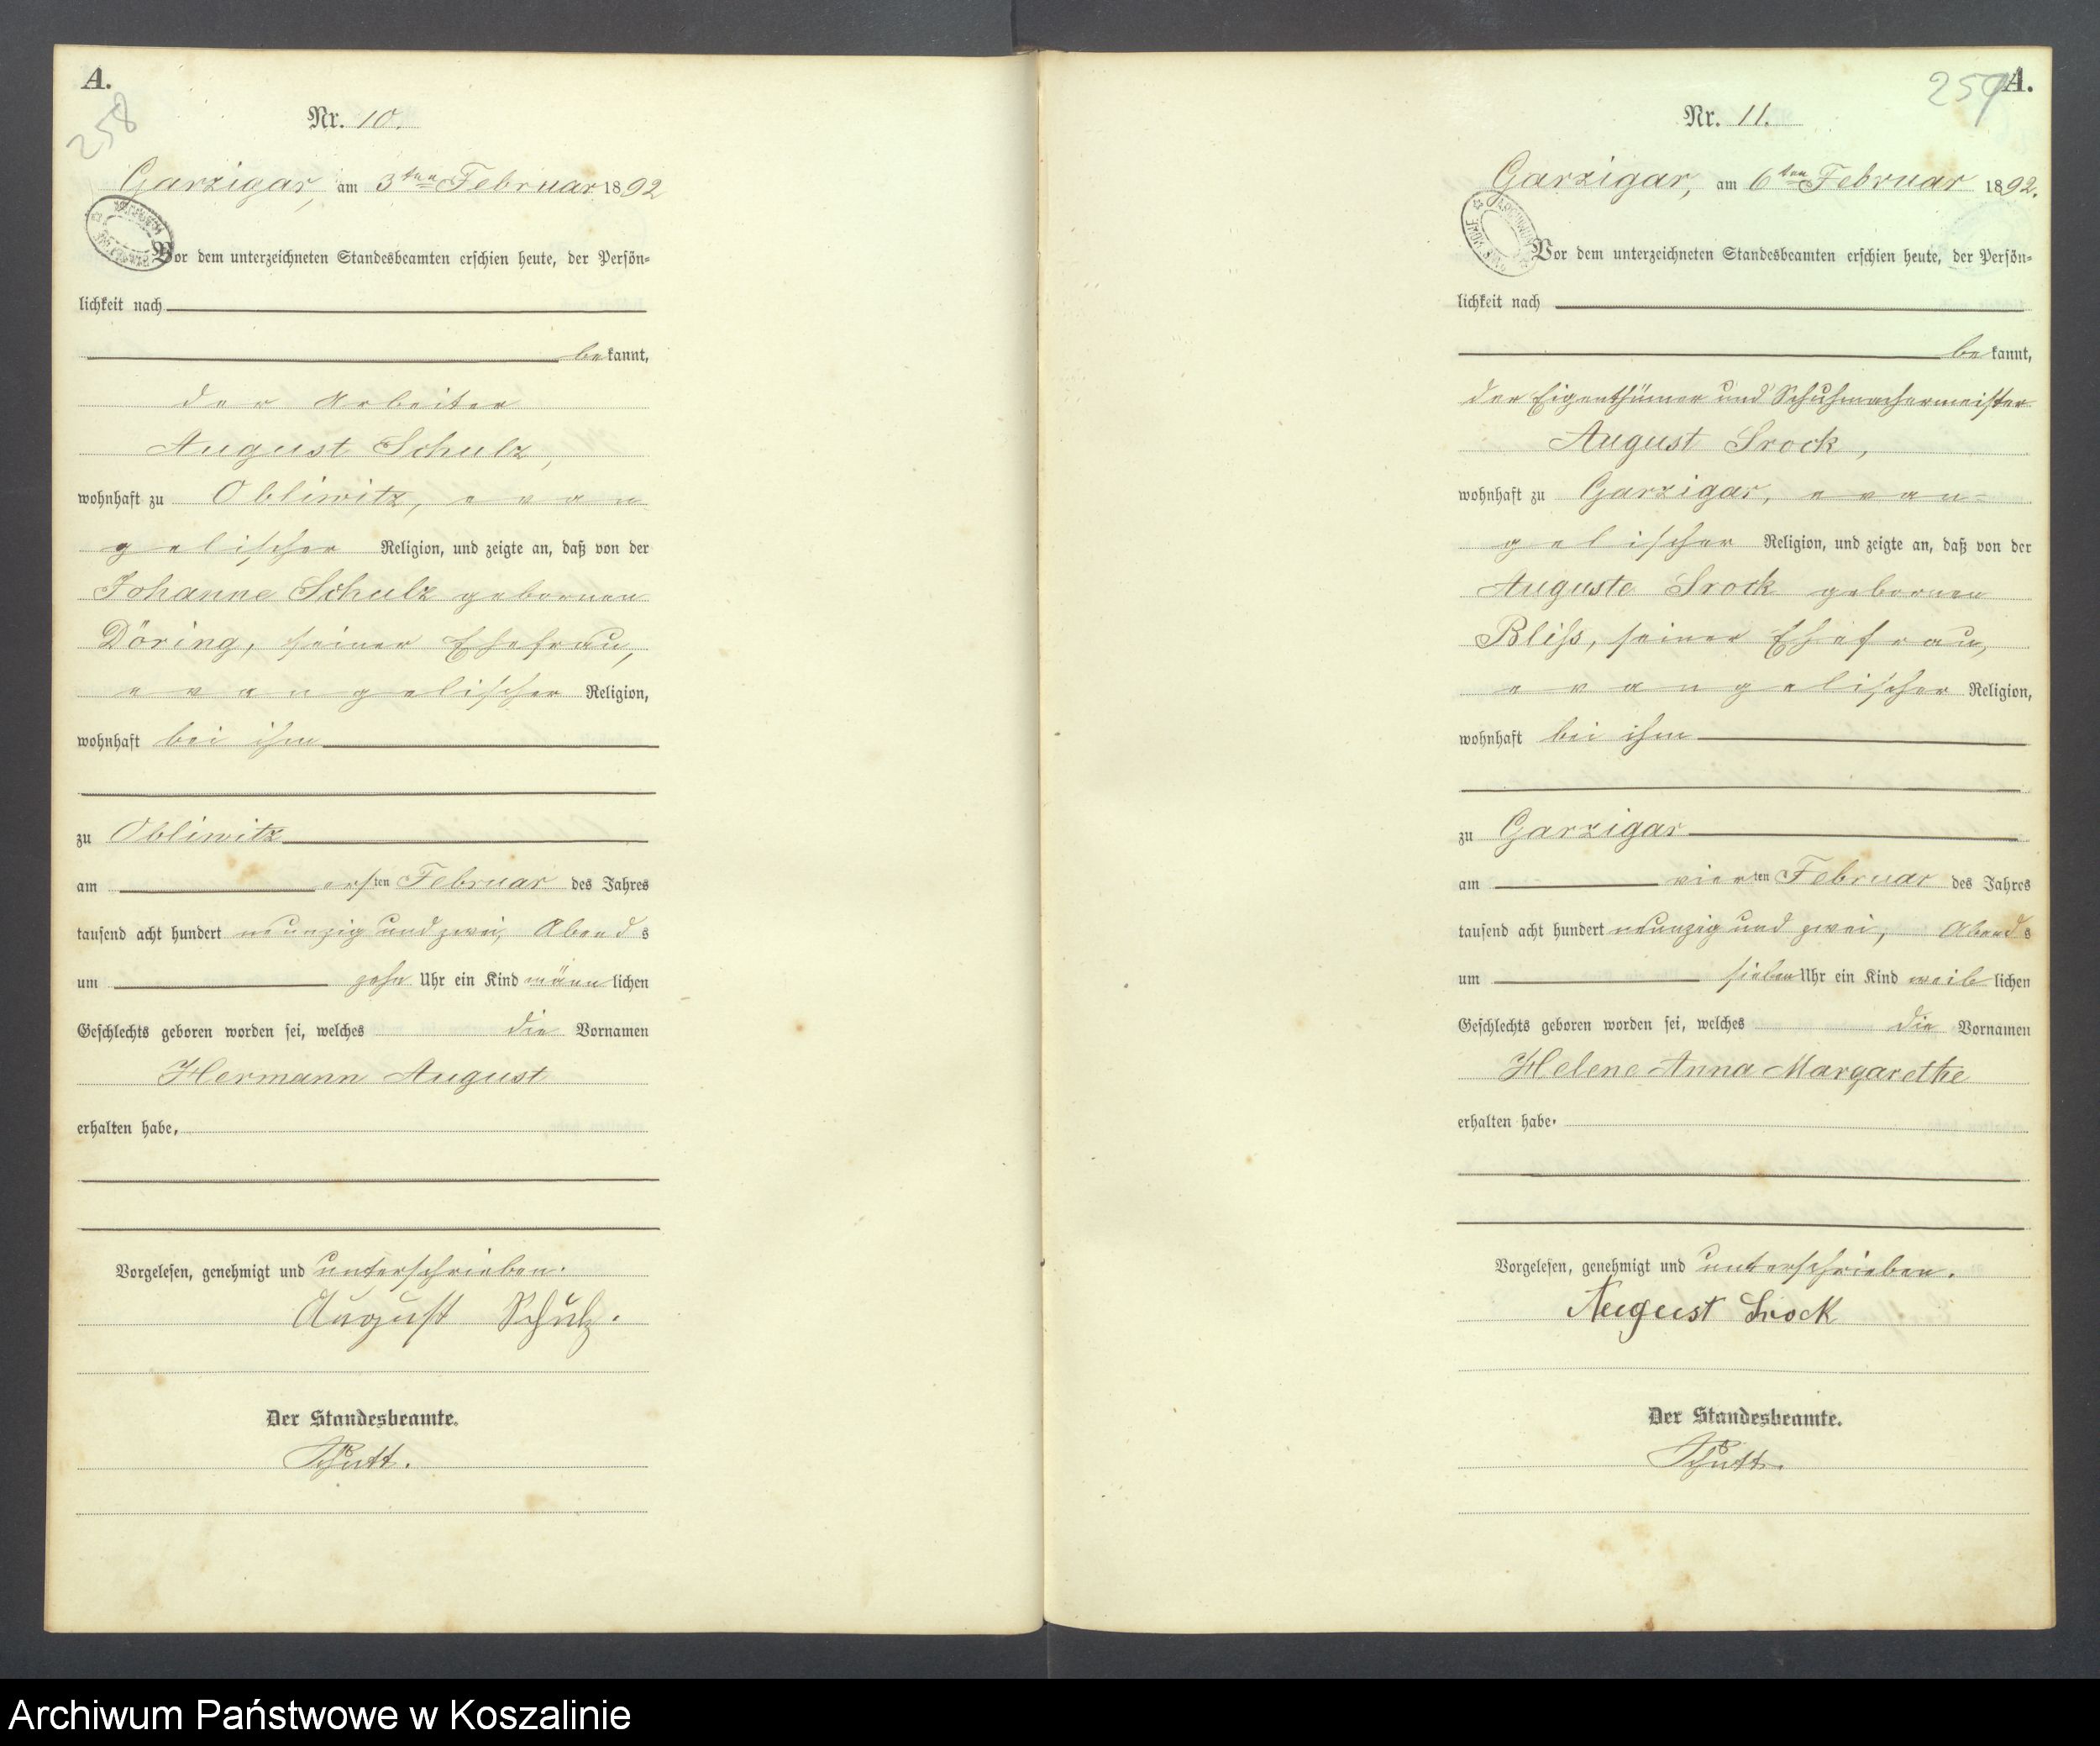 A.
258
Nr. 10.
Garzigar, am 3ten Februar 1892
Vor dem unterzeichneten Standesbeamten erschien heute, der Persön-
lichkeit nach
bekannt,
der Arbeiter
August Schulz,
wohnhaft zu Obliwitz, evan
gelischer Religion, und zeigte an, daß von der
Johanne Schulz gebornen
Döring, seiner Ehefrau,
evangelischer Religion,
wohnhaft bei ihm
zu Obliwitz
am ersten Februar des Jahres
tausend acht hundert neunzig und zwei, Abends
um zehn Uhr ein Kind männlichen
Geschlechts geboren worden sei, welches die Vornamen
Hermann August
erhalten habe.
Vorgelesen, genehmigt und unterschrieben.
August Schulz.
Der Standesbeamte.
Schütt.
A.
259
Nr. 11.
Garzigar, am 6ten Februar 1892.
Vor dem unterzeichneten Standesbeamten erschien heute, der Persön-
lichkeit nach
bekannt,
der Eigenthümer und Schuhmachermeister
August Srock,
wohnhaft zu Garzigar, evan-
gelischer Religion, und zeigte an, daß von der
Auguste Srock gebornen
Bliss, seiner Ehefrau,
evangelischer Religion,
wohnhaft bei ihm
zu Garzigar
am vierten Februar des Jahres
tausend acht hundert neunzig und zwei, Abends
um sieben Uhr ein Kind weiblichen
Geschlechts geboren worden sei, welches die Vornamen
Helene Anna Margarethe
erhalten habe.
Vorgelesen, genehmigt und unterschrieben.
August Srock
Der Standesbeamte.
Schütt.
Archiwum Państwowe w Koszalinie